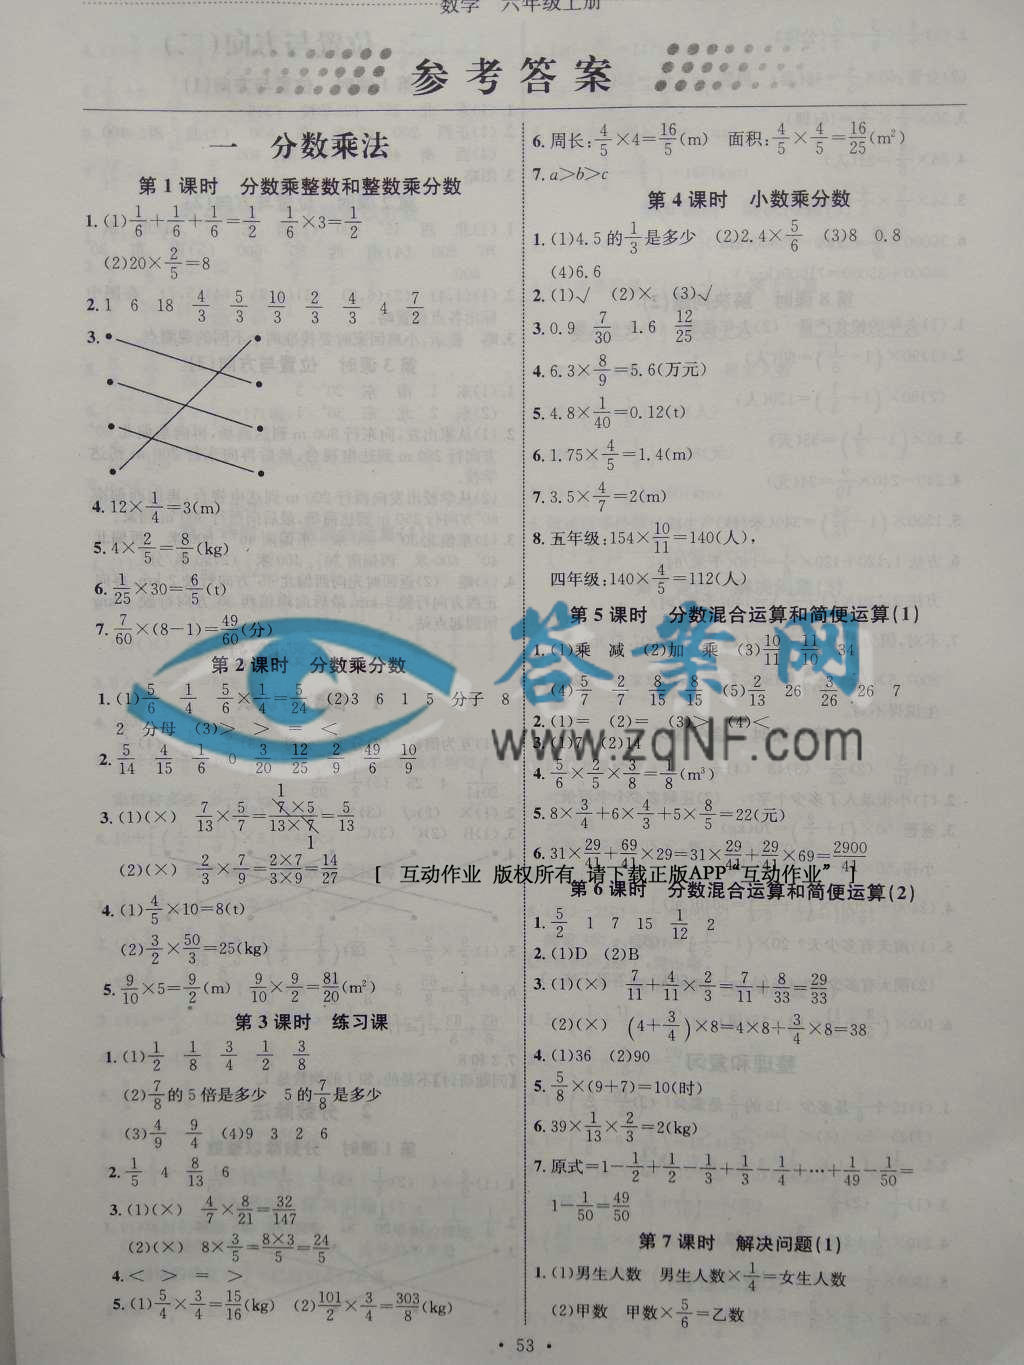 数学 六年级上册
参考答案
一 分数乘法
第1课时 分数乘整数和整数乘分数
1.(1)1/6+1/6+1/6=1/2 1/6×3=1/2
(2)20×2/5=8
2.1 6 18 4/3 5/3 10/3 2/3 4/3 4 7/2
3.
4.12×1/4=3(m)
5.4×2/5=8/5(kg)
6.1/25×30=6/5(t)
7.7/60×(8-1)=49/60(分)
第2课时 分数乘分数
1.(1)5/6 1/4 5/6×1/4=5/24 (2)3 6 1 5 分子 8
2 分母 (3)> > = <
2.5/14 4/15 1/6 0 3/20 12/25 2/9 49/6 10/9
3.(1)(×) 7/13×5/7=7×5/13×7=5/13
1
1
(2)(×) 2/3×7/9=2×7/3×9=14/27
4.(1)4/5×10=8(t)
(2)3/2×50/3=25(kg)
5.9/10×5=9/2(m) 9/10×9/2=81/20(m²)
第3课时 练习课
1.(1)1/2 1/8 3/4 1/2 3/8
(2)7/8的5倍是多少 5的7/8是多少
(3)4/9 9/4 (4)9 3 2 6
2.1/5 4 8/13 6
3.(1)(×) 4/7×8/21=32/147
(2)(×) 8×3/5=8×3/5=24/5
4.< > = >
5.(1)5/4×3/4=15/16(kg) (2)101/2×3/4=303/8(kg)
6.周长:4/5×4=16/5(m) 面积:4/5×4/5=16/25(m²)
7.a>b>c
第4课时 小数乘分数
1.(1)4.5的1/3是多少 (2)2.4×5/6 (3)8 0.8
(4)6.6
2.(1)√ (2)× (3)√
3.0.9 7/30 1.6 12/25
4.6.3×8/9=5.6(万元)
5.4.8×1/40=0.12(t)
6.1.75×4/5=1.4(m)
7.3.5×4/7=2(m)
8.五年级:154×10/11=140(人),
四年级:140×4/5=112(人)
第5课时 分数混合运算和简便运算(1)
1.(1)乘 减 (2)加 乘 (3)10/11 11/10 34
(4)5/7 2/7 8/15 8/15 (5)2/13 26 3/26 26 7
2.(1)= (2)= (3)> (4)<
3.(1)7 (2)14
4.5/6×2/5×3/8=1/8(m³)
5.8×3/4+6×4/3+5×8/5=22(元)
6.31×29/41+69/41×29=31×29/41+29/41×69=2900/41
[ 互动作业 版权所有 请下载正版APP“互动作业” ]
第6课时 分数混合运算和简便运算(2)
1.5/2 1 7 15 1/12 2
2.(1)D (2)B
3.(1)(×) 7/11+4/11×2/3=7/11+8/33=29/33
(2)(×) (4+3/4)×8=4×8+3/4×8=38
4.(1)36 (2)90
5.5/8×(9+7)=10(时)
6.39×1/13×2/3=2(kg)
7.原式=1-1/2+1/2-1/3+1/3-1/4+…+1/49-1/50=
1-1/50=49/50
第7课时 解决问题(1)
1.(1)男生人数 男生人数×1/4=女生人数
(2)甲数 甲数×5/6=乙数
• 53 •
答案网
www.zqNF.com